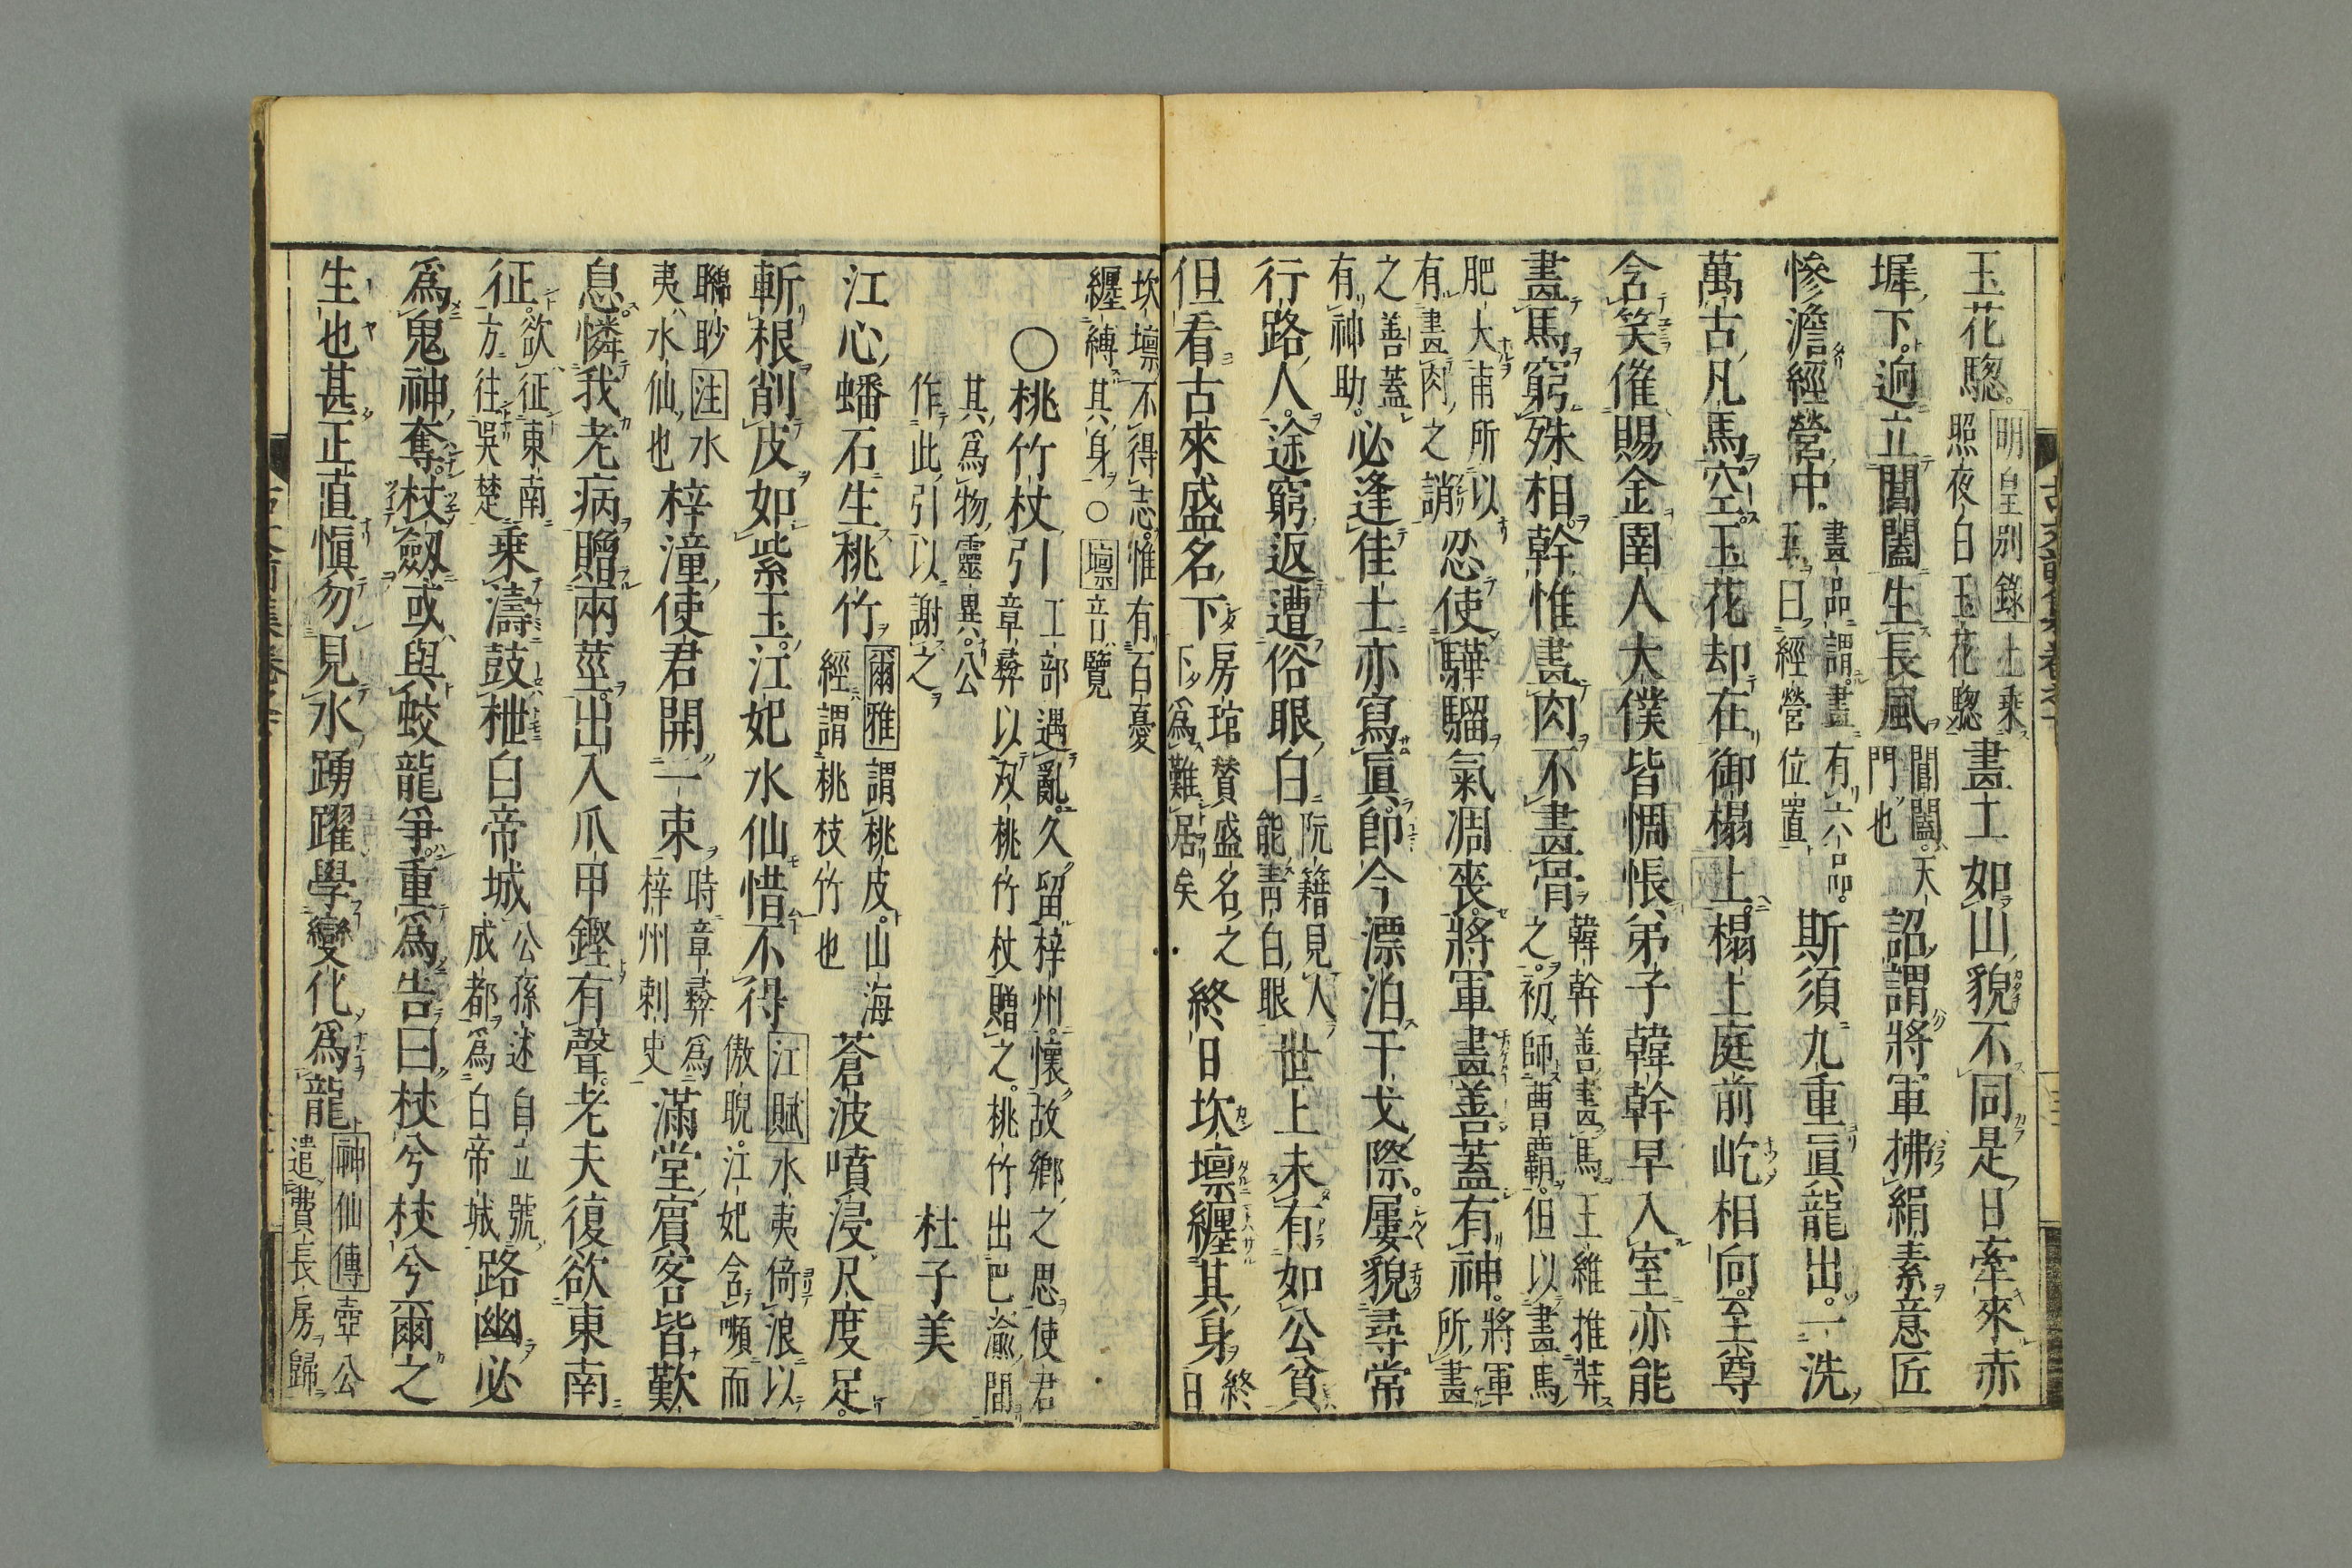 玉花驄明皇別錄上乘照夜白玉花驄畫工如山貌不同是日牽來赤
墀下逈立閶闔生長風閶闔天門也詔謂將軍拂絹素意匠
慘澹經營中畫品謂畫有六品五曰經營位置斯須九重眞龍出一洗
萬古凡馬空玉花却在御榻上榻上庭前屹相向至尊
含笑催賜金圉人太僕皆惆悵弟子韓幹早入室亦能
畫馬窮殊相幹惟畫肉不畫骨韓幹善畫馬王維推奘之初師曹霸但以畫馬
肥大甫所以有畫肉之誚忍使驊騮氣凋喪將軍畫善蓋有神將軍所畫
之善蓋有神助必逢佳士亦寫眞卽今漂泊干戈際屢貌尋常
行路人途窮返遭俗眼白阮籍見人能靑白眼世上未有如公貧
但看古來盛名下房琯贊盛名之下爲難居矣終日坎壈纏其身終日
坎壈不得志惟有百憂纏縛其身○壈音覽
○桃竹杖引工部遇亂久留梓州懷故鄉之思使君章彝以双桃竹杖贈之桃竹出巴渝間
其爲物靈異公作此引以謝之
杜子美
江心蟠石生桃竹爾雅謂桃皮山海經謂桃枝竹也蒼波噴浸尺度足
斬根削皮如紫玉江妃水仙惜不得江賦水夷倚浪以傲睨江妃含嚬而
聯眇注水夷水仙也梓潼使君開一束時章彝爲梓州刺史滿堂賓客皆歎
息憐我老病贈兩莖出入爪甲鏗有聲老夫復欲東南
征欲征東南方往吳楚乘濤鼓枻白帝城公孫述自立號成都爲白帝城路幽必
爲鬼神奪杖劔或與蛟龍爭重爲告曰杖兮杖兮爾之
生也甚正直愼勿見水踴躍學變化爲龍神仙傳壺公遣費長房歸